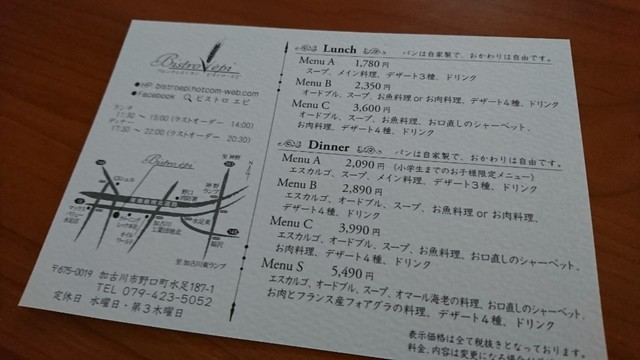 Bistro epi
フレンチレストラン ビストロ・エピ
●HP bistroepi.hotcom-web.com
●Facebook ビストロ エピ
ランチ
11:30 ～ 15:00 (ラストオーダー 14:00)
ディナー
17:30 ～ 22:00 (ラストオーダー 20:30)
Bistro epi
至 神野
神野ランプ
野口
水足東
加古川工業団地北
稲沢
至 加古川東ランプ
〒675-0019 加古川市野口町水足187-1
TEL 079-423-5052
定休日 水曜日・第3木曜日
Lunch パンは自家製で、おかわりは自由です。
Menu A 1,780円
スープ、メイン料理、デザート3種、ドリンク
Menu B 2,350円
オードブル、スープ、お魚料理 or お肉料理、デザート4種、ドリンク
Menu C 3,600円
オードブル、スープ、お魚料理、お口直しのシャーベット、
お肉料理、デザート4種、ドリンク
Dinner パンは自家製で、おかわりは自由です。
Menu A 2,090円 (小学生までのお子様限定メニュー)
エスカルゴ、スープ、メイン料理、デザート3種、ドリンク
Menu B 2,890円
エスカルゴ、オードブル、スープ、お魚料理 or お肉料理、
デザート4種、ドリンク
Menu C 3,990円
エスカルゴ、オードブル、スープ、お魚料理、お口直しのシャーベット、
お肉料理、デザート4種、ドリンク
Menu S 5,490円
エスカルゴ、オードブル、スープ、オマール海老の料理、お口直しのシャーベット、
お肉とフランス産フォアグラの料理、デザート4種、ドリンク
表示価格は全て税抜きとなっております。
料金、内容は変更になる